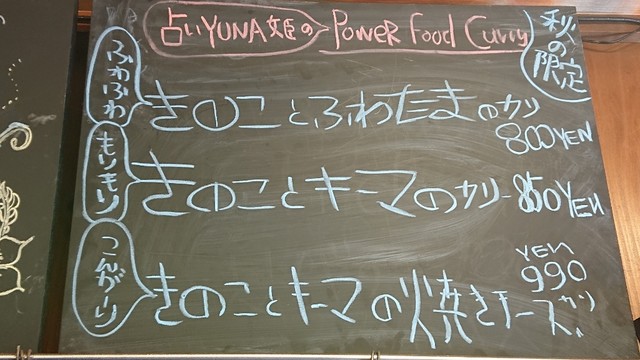 占いYUNA姫の Power Food Curry
秋の限定
ふわふわ
きのことふわたまのカリー
800YEN
もりもり
きのことキーマのカリー 850YEN
こんがーり
きのことキーマの焼きチーズカリー
YEN 990